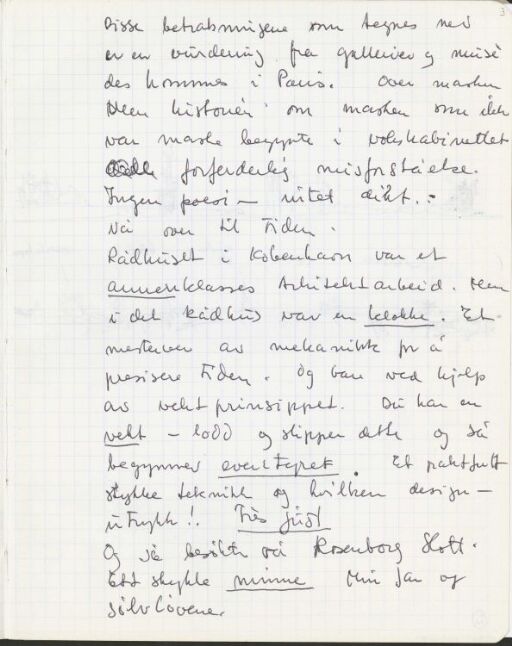 3
Disse betraktningene som tegnes ned
er en vurdering fra gallerier og musé
des hommes i Paris. Over masken
Men historien om masken som ikke
var maske begynte i vokskabinettet
forferdelig misforståelse.
Ingen poesi — intet dikt.
Nå over til Tiden.
Rådhuset i København var et
annenklasses Arkitektarbeid. Men
i det Rådhus var en klokke. Et
mesterverk av mekanikk for å
presisere Tiden. Og bare ved hjelp
av vektprinsippet. Du har en
vekt — lodd og slipper dette og så
begynner eventyret. Et
stykke teknikk og hvilken design —
uttrykk!! Très juste
Og så besøkte vi Rosenborg Slott.
Ett stykke minne Min far og
sølvløvene.